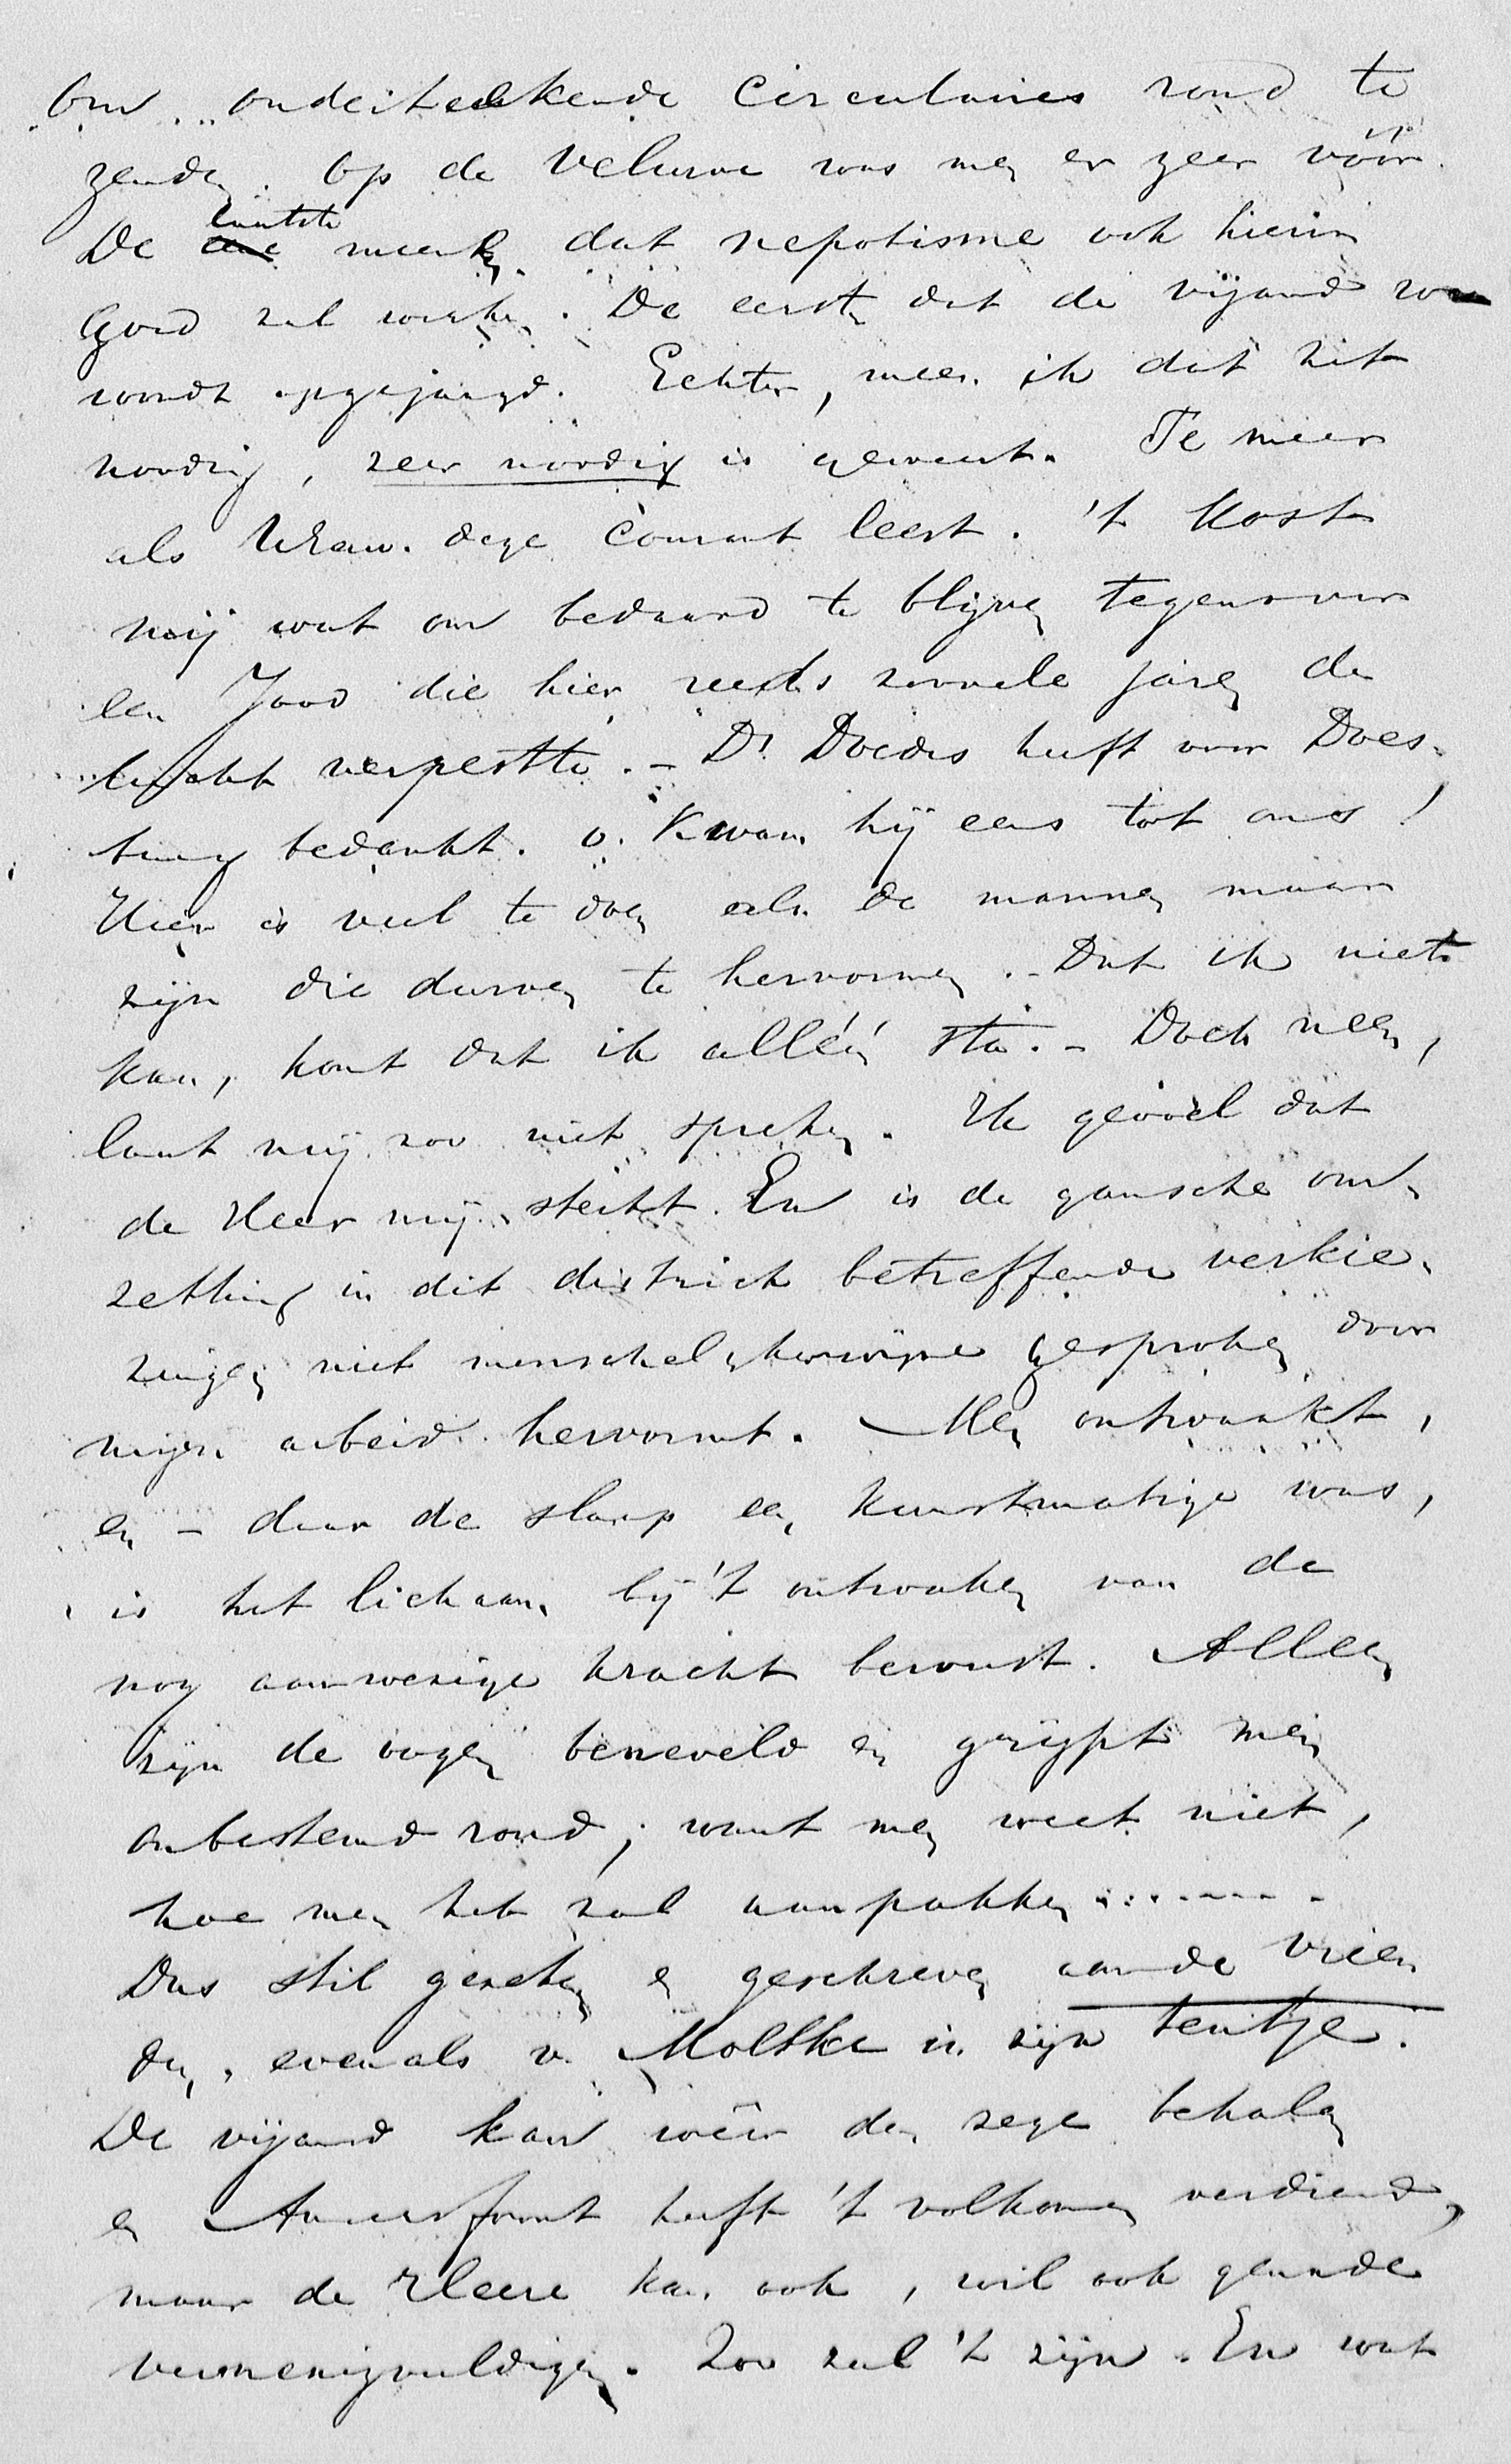 om onderteekende circulaires rond te
zenden. Op de Veluwe was men er zeer vóór.
De laatste meenen dat nepotisme ook hierin
Goed zal werken. De eersten dat de vijand zoo
wordt opgejaagd. Echter, meen ik dat het
noodig, zeer noodig is geweest. Te meer
als Uw. deze Courant leest. 't Kost
mij wat om bedaard te blijven tegenover
een Jood die hier reeds zoovele jaren de
lucht verpestte. – Dr. Doedes heeft voor Does-
burg bedankt. o. Kwam hij eens tot ons!
Hier is veel te doen als de mannen maar
zijn die durven te hervormen. – Dat ik niet
kan, komt dat ik alléén sta. – Doch neen,
laat mij zoo niet spreken. Ik gevoel dat
de Heer mij sterkt. En is de gansche om-
zetting in dit district betreffende verkie-
zingen niet menschelykerwijze gesproken door
mijn arbeid hervormt. Men ontwaakt,
en – daar de slaap een kunstmatige was,
is het lichaam bij 't ontwaken van de
nog aanwezige kracht bewust. Alleen
zijn de oogen beneveld en grijpt men
onbestemd rond; want men weet niet,
hoe men het zal aanpakken .........
Dus stil gezeten en geschreven aan de vrien
den, evenals v. Moltke in zijn tentje.
De vijand kan wêer den zege behalen
en Amersfoort heeft 't volkomen verdiend,
maar de Heere kan ook, wil ook genade
vermenigvuldigen. Zoo zal 't zijn. En wat